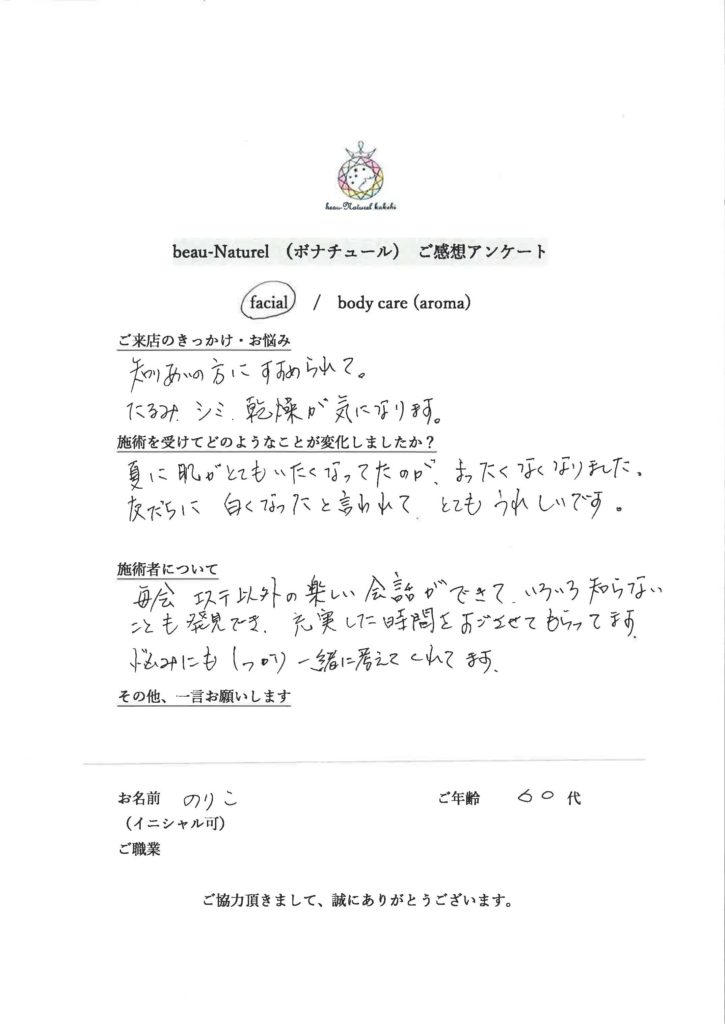 beau-Naturel kakehi
beau-Naturel （ボナチュール） ご感想アンケート
facial / body care (aroma)
ご来店のきっかけ・お悩み
知りあいの方に すすめられて。
たるみ、シミ、乾燥が 気になります。
施術を受けてどのようなことが変化しましたか？
夏に 肌がとてもいたくなってたのが、まったくなくなりました。
友だちに 白くなったと言われて、とても うれしいです。
施術者について
毎会 エステ以外の楽しい 会話ができて、いろいろ 知らない
ことも 発見でき、充実した時間をすごさせてもらってます。
悩みにも しっかり 一緒に考えてくれてます。
その他、一言お願いします
お名前 のりこ ご年齢 60 代
（イニシャル可）
ご職業
ご協力頂きまして、誠にありがとうございます。